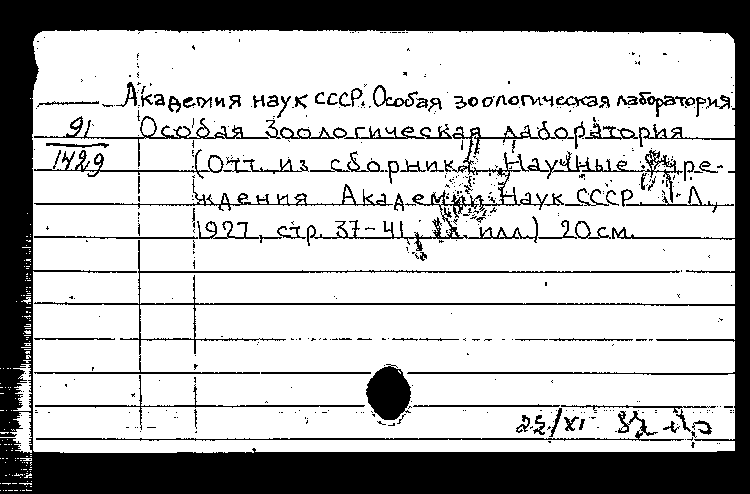 Академия наук СССР. Особая зоологическая лаборатория.
91 Особая зоологическая лаборатория
1429 (Отт. из сборника Научные учре-
ждения Академии Наук СССР. Л.,
1927, стр. 37-41, илл.) 20 см.
22/XI